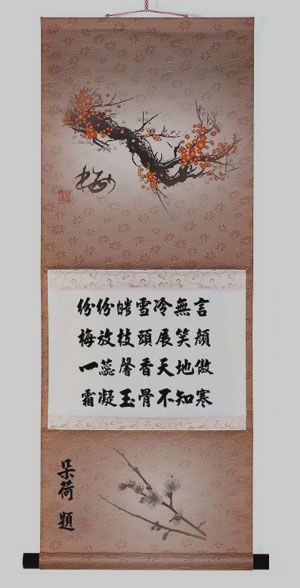 梅
紛紛皓雪冷無言
梅放枝頭展笑顏
一蕊馨香天地傲
霜凝玉骨不知寒
朵荷題